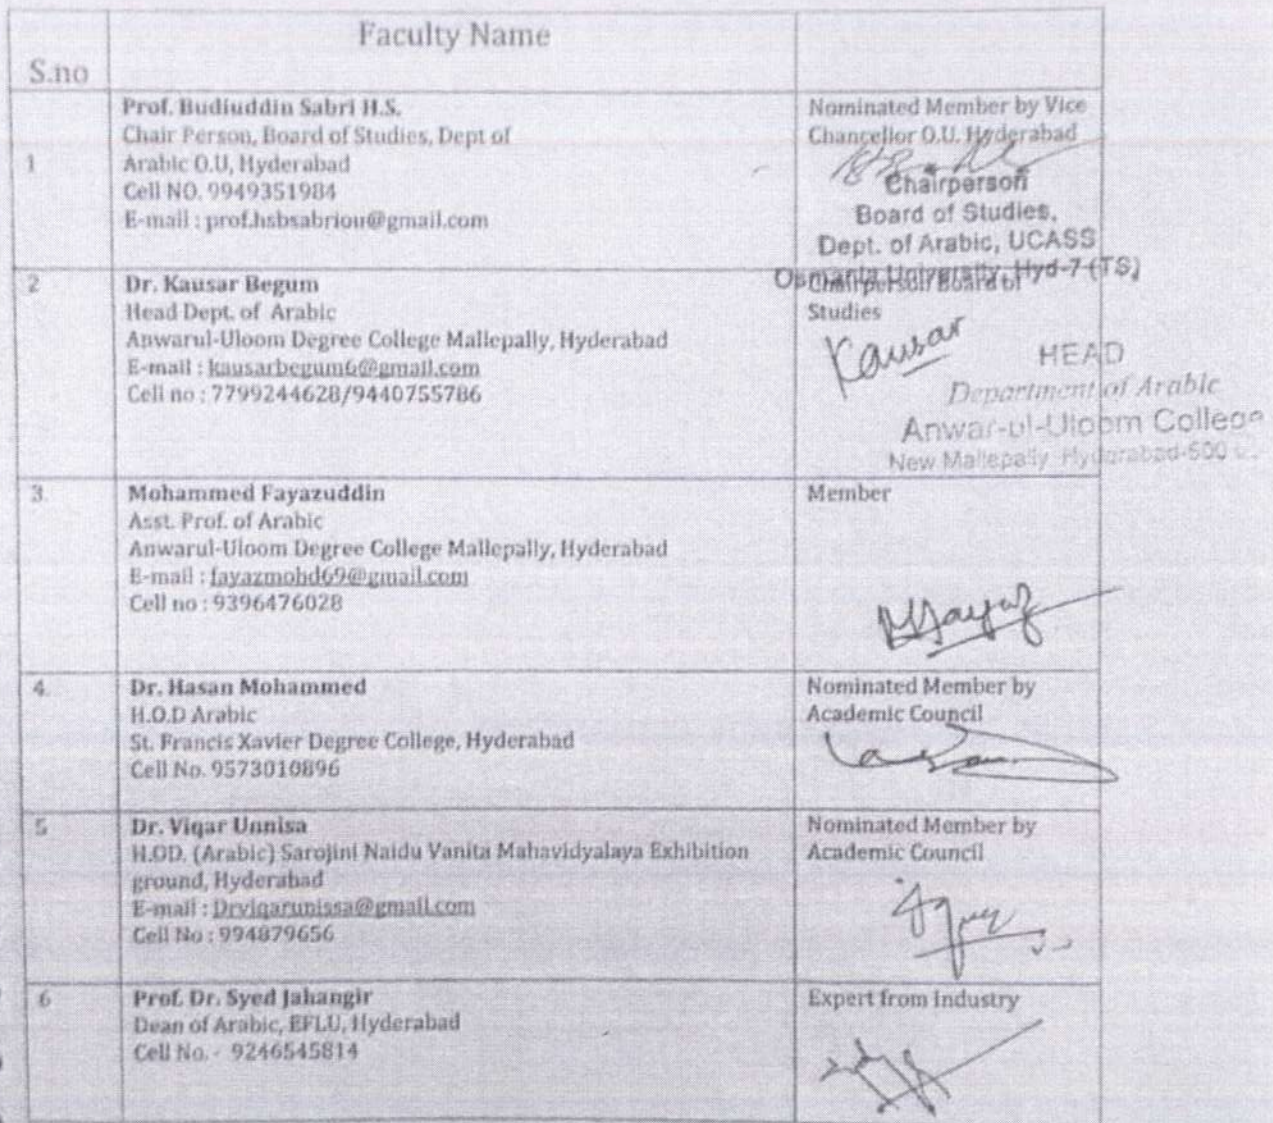 Faculty Name
S.no
1
Prof. Budiuddin Sabri H.S.
Chair Person, Board of Studies, Dept of
Arabic O.U, Hyderabad
Cell NO. 9949351984
E-mail : prof.hsbsabriou@gmail.com
Nominated Member by Vice
Chancellor O.U. Hyderabad
Chairperson
Board of Studies,
Dept. of Arabic, UCASS
Osmania University, Hyd-7 (TS)
2
Dr. Kausar Begum
Head Dept. of Arabic
Anwarul-Uloom Degree College Mallepally, Hyderabad
E-mail : kausarbegum6@gmail.com
Cell no : 7799244628/9440755786
Chairperson Board of
Studies
Kausar
HEAD
Department of Arabic
Anwar-ul-Uloom College
New Mallepally Hyderabad-500
3.
Mohammed Fayazuddin
Asst. Prof. of Arabic
Anwarul-Uloom Degree College Mallepally, Hyderabad
E-mail : fayazmohd69@gmail.com
Cell no : 9396476028
Member
4.
Dr. Hasan Mohammed
H.O.D Arabic
St. Francis Xavier Degree College, Hyderabad
Cell No. 9573010896
Nominated Member by
Academic Council
5
Dr. Viqar Unnisa
H.OD. (Arabic) Sarojini Naidu Vanita Mahavidyalaya Exhibition
ground, Hyderabad
E-mail : Drviqarunissa@gmail.com
Cell No : 994879656
Nominated Member by
Academic Council
6
Prof. Dr. Syed Jahangir
Dean of Arabic, EFLU, Hyderabad
Cell No. - 9246545814
Expert from Industry